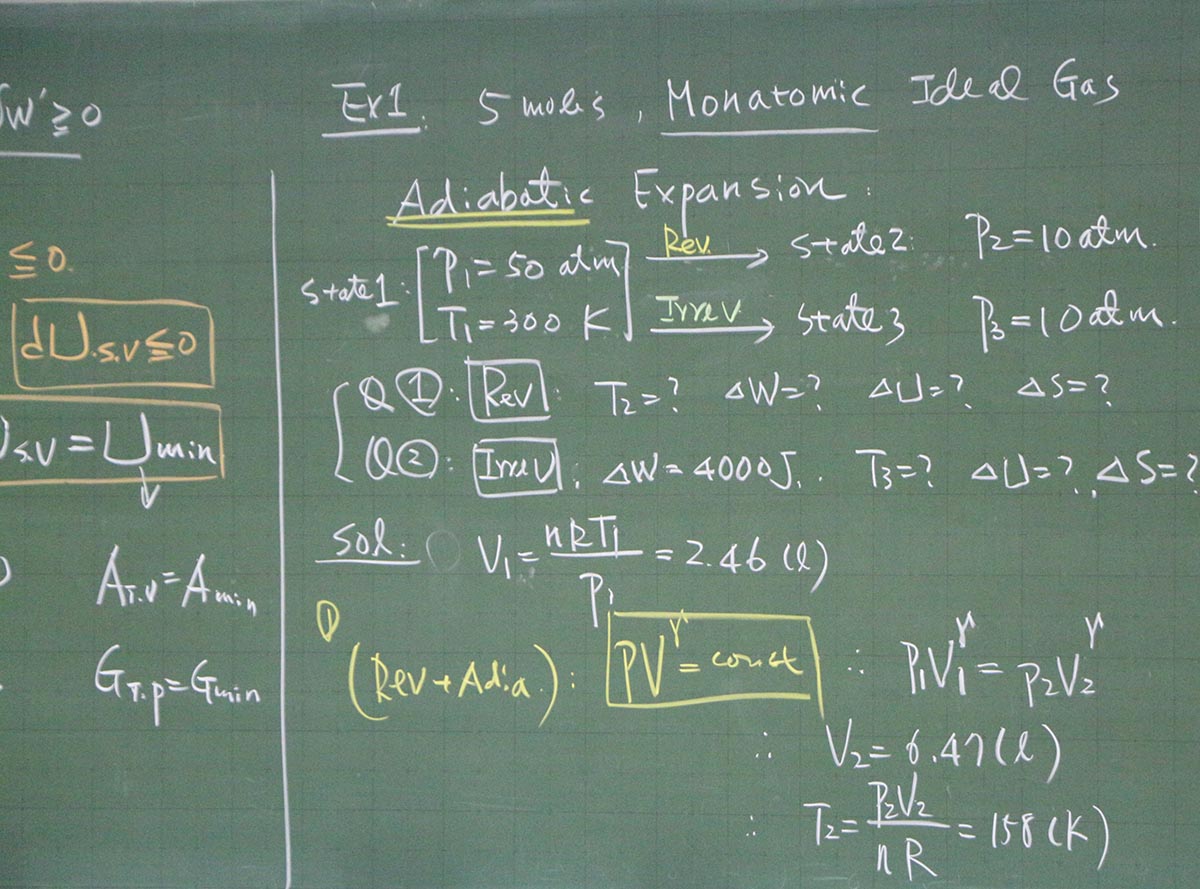 δW' ≧ 0
≦ 0.
dU.s.v ≦ 0
s.v = Umin
A_T.V = A_min
G_T.p = G_min
Ex1. 5 moles, Monatomic Ideal Gas
Adiabatic Expansion:
state1: [P₁ = 50 atm T₁ = 300 K]
Rev. → state2: P₂ = 10 atm.
Irrev → state3 P₃ = 10 atm.
Q①: Rev: T₂ = ? ΔW = ? ΔU = ? ΔS = ?
Q②: Irrev: ΔW = 4000J. T₃ = ? ΔU = ?, ΔS = ?
Sol: V₁ = nRT₁/P₁ = 2.46 (l)
① (Rev + Adia.): PV^γ = const ∴ P₁V₁^γ = P₂V₂^γ
∴ V₂ = 6.47 (l)
∴ T₂ = P₂V₂/nR = 158 (K)